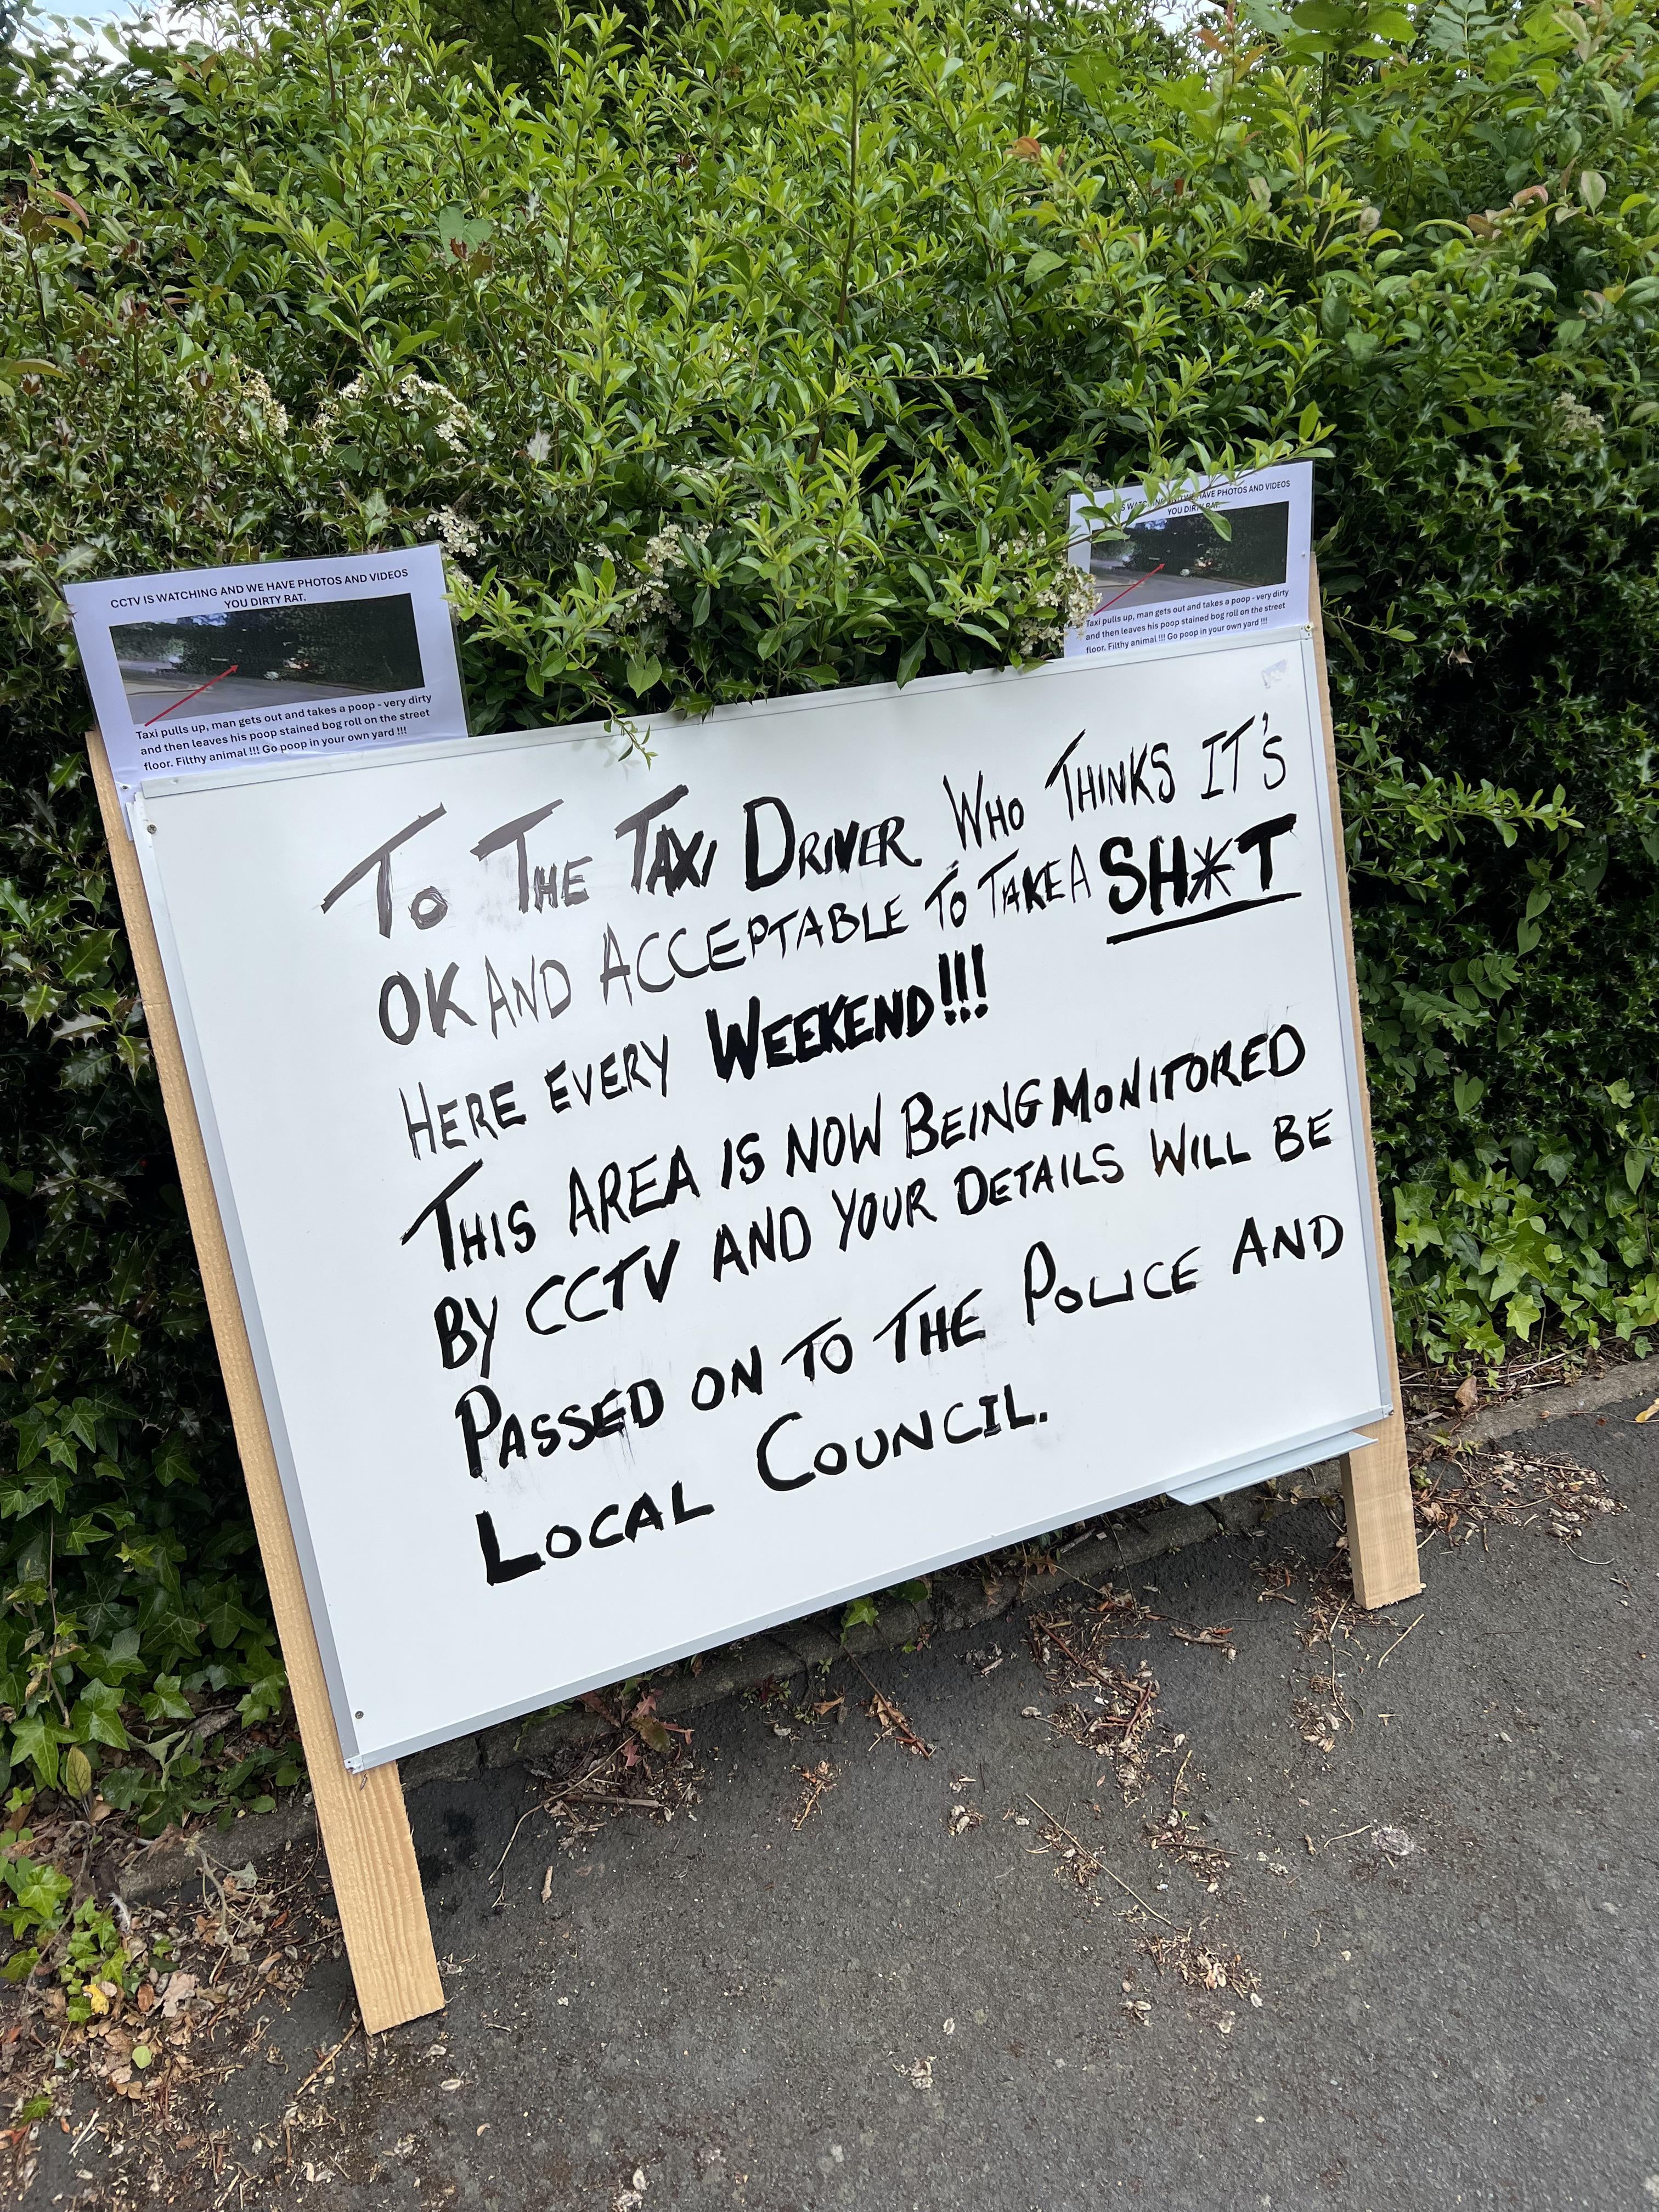 CCTV IS WATCHING AND WE HAVE PHOTOS AND VIDEOS
YOU DIRTY RAT.
Taxi pulls up, man gets out and takes a poop - very dirty
and then leaves his poop stained bog roll on the street
floor. Filthy animal !!! Go poop in your own yard !!!
WE HAVE PHOTOS AND VIDEOS
YOU DIRTY RAT.
Taxi pulls up, man gets out and takes a poop - very dirty
and then leaves his poop stained bog roll on the street
floor. Filthy animal !!! Go poop in your own yard !!!
TO THE TAXI DRIVER WHO THINKS IT'S
OK AND ACCEPTABLE TO TAKE A SH*T
HERE EVERY WEEKEND!!!
THIS AREA IS NOW BEING MONITORED
BY CCTV AND YOUR DETAILS WILL BE
PASSED ON TO THE POLICE AND
LOCAL COUNCIL.